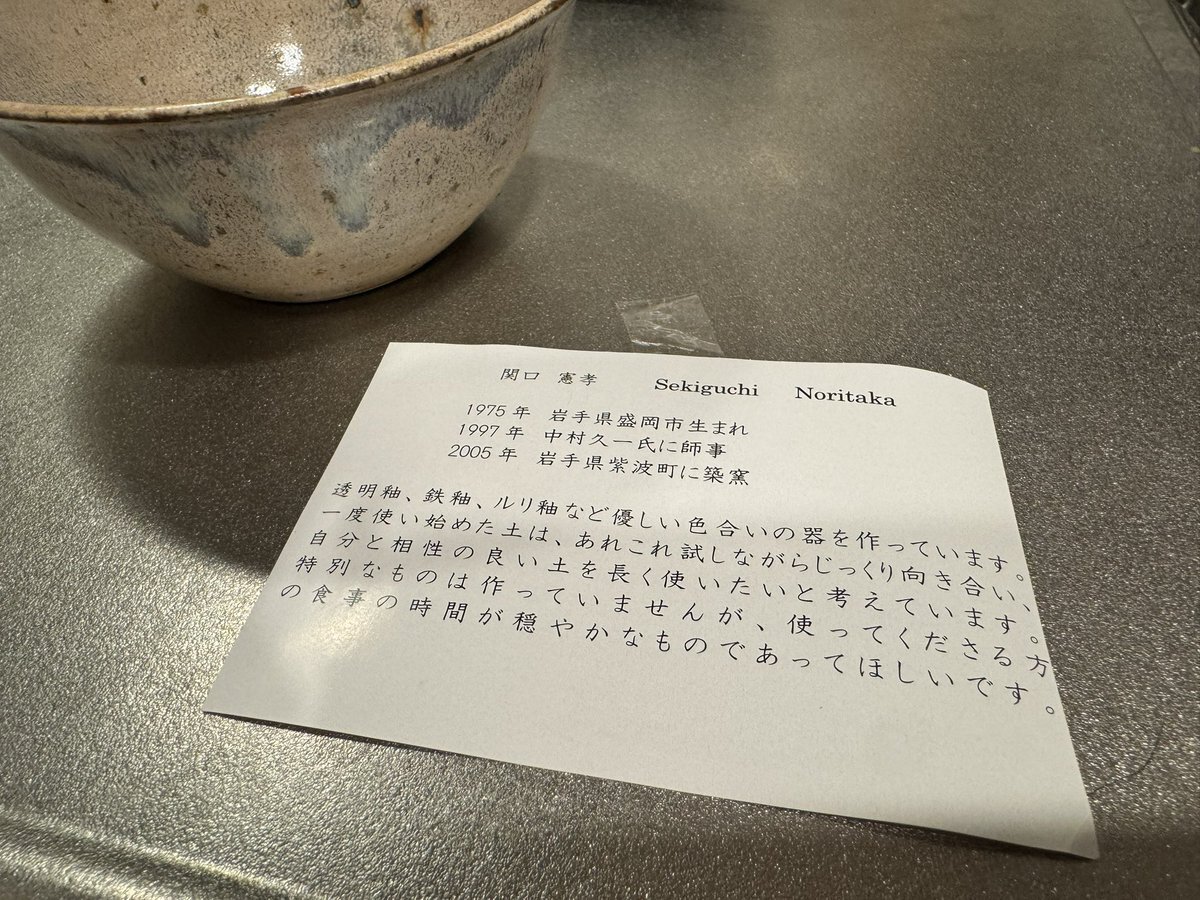 関口 憲孝 Sekiguchi Noritaka
1975年 岩手県盛岡市生まれ
1997年 中村久一氏に師事
2005年 岩手県紫波町に築窯
透明釉、鉄釉、ルリ釉など優しい色合いの器を作っています。
一度使い始めた土は、あれこれ試しながらじっくり向き合い、
自分と相性の良い土を長く使いたいと考えています。
特別なものは作っていませんが、使ってくださる方
の食事の時間が穏やかなものであってほしいです。